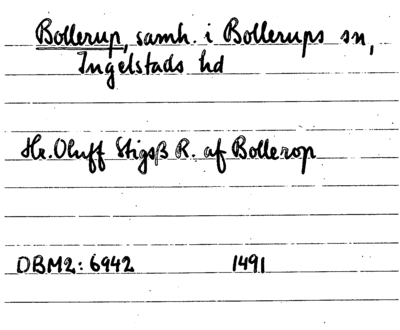 Bollerup, samh. i Bollerups sn,
Ingelstads hd
Hr. Oluff Stigsß R. af Bollerop
DBM2: 6942 1491